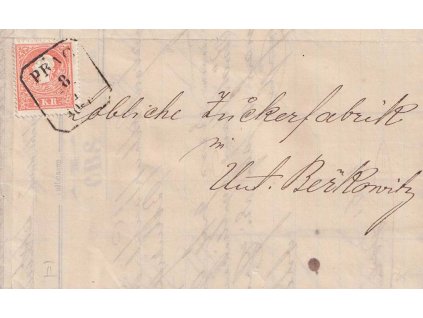 PRAG
8
KR
Löbliche Zuckerfabrik
in
Unt. Beřkowitz